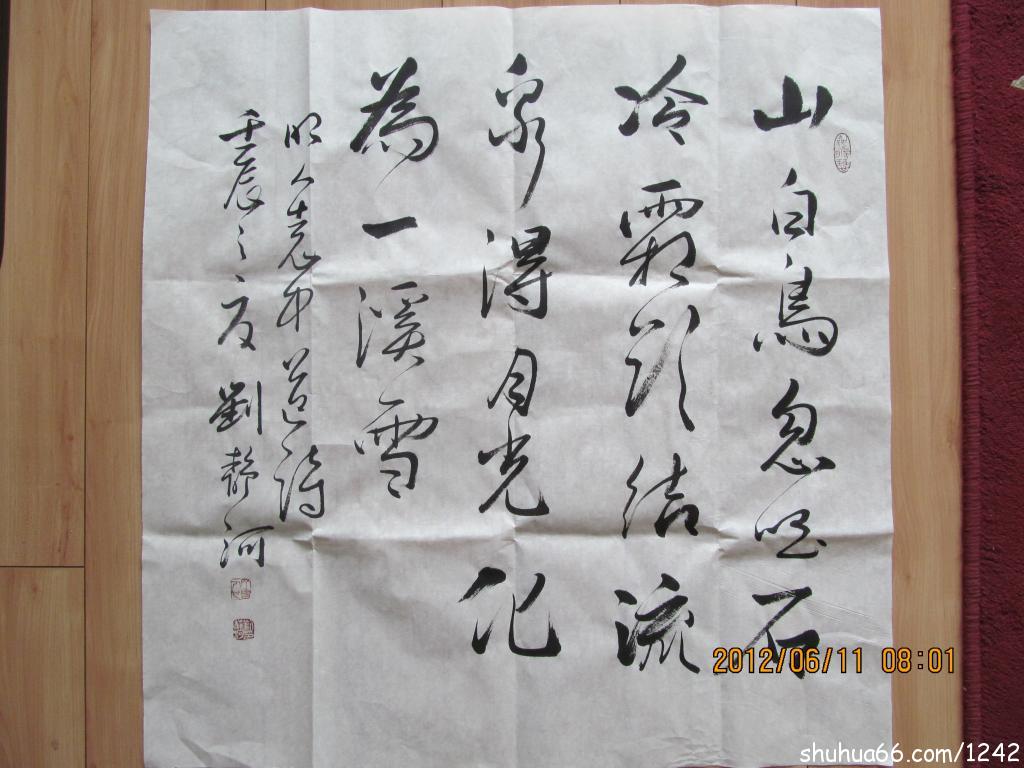 山白鳥忽鸣石
冷霜欲结流
泉得月光化
為一溪雪
明人袁中道诗
壬辰之夏 劉静河
2012/06/11 08:01
shuhua66.com/1242